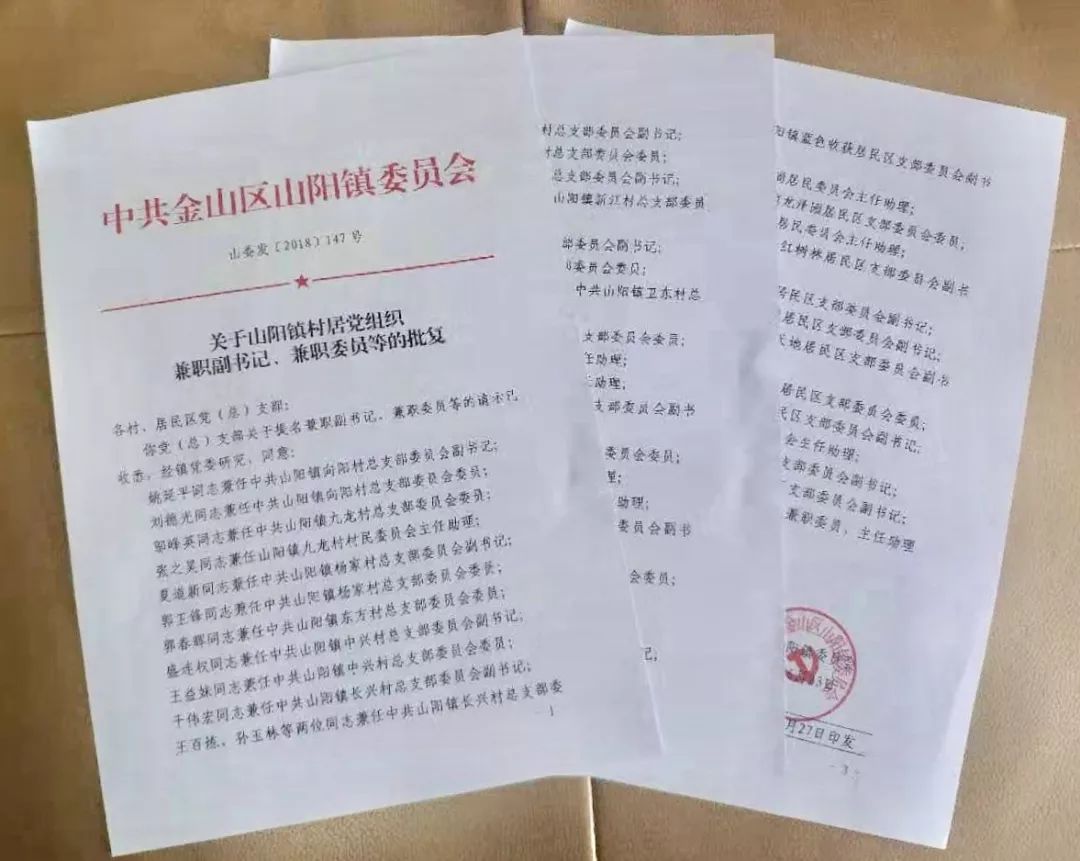 中共金山区山阳镇委员会
山委发〔2018〕147 号
关于山阳镇村居党组织
兼职副书记、兼职委员等的批复
各村、居民区党（总）支部：
你党（总）支部关于提名兼职副书记、兼职委员等的请示已
收悉，经镇党委研究，同意：
姚延平同志兼任中共山阳镇向阳村总支部委员会副书记；
刘德光同志兼任中共山阳镇向阳村总支部委员会委员；
邬峰英同志兼任中共山阳镇九龙村总支部委员会委员；
张之昊同志兼任山阳镇九龙村村民委员会主任助理；
夏道新同志兼任中共山阳镇杨家村总支部委员会副书记；
郭王锋同志兼任中共山阳镇杨家村总支部委员会委员；
郭春辉同志兼任中共山阳镇东方村总支部委员会委员；
盛连权同志兼任中共山阳镇中兴村总支部委员会副书记；
王益妹同志兼任中共山阳镇中兴村总支部委员会委员；
干伟宏同志兼任中共山阳镇长兴村总支部委员会副书记；
王百拣、孙玉林等两位同志兼任中共山阳镇长兴村总支部委
- 1
村总支部委员会副书记；
村总支部委员会委员；
总支部委员会副书记；
山阳镇新江村总支部委员
部委员会副书记；
委员会委员；
中共山阳镇卫东村总
支部委员会委员；
任助理；
主助理；
支部委员会副书
委员会委员；
助理；
委员会副书
会委员；
记；
阳镇蓝色收获居民区支部委员会副书
居民委员会主任助理；
龙泽园居民区支部委员会委员；
居民委员会主任助理；
红树林居民区支部委员会副书
居民区支部委员会副书记；
居民区支部委员会副书记；
天地居民区支部委员会副书
居民区支部委员会委员；
民区支部委员会副书记；
会主任助理；
支部委员会副书记；
支部委员会副书记；
兼职委员、主任助理
金山区山阳镇委员会
阳镇委员
3日
月27日印发
- 3